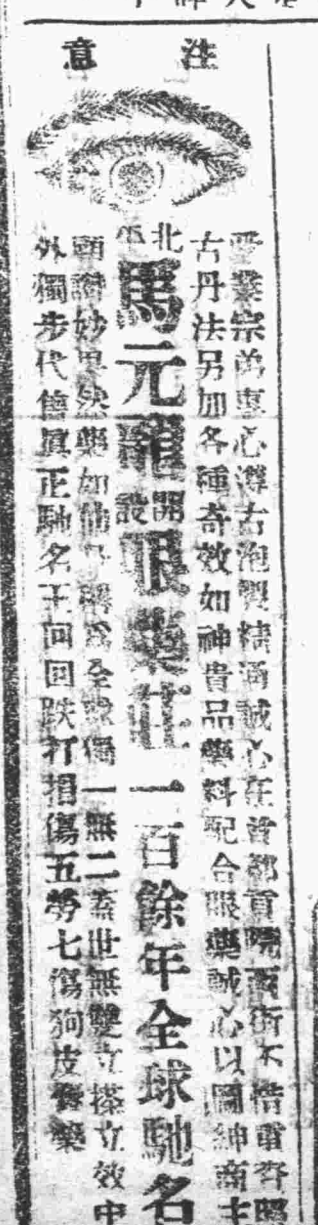 注意
營業宗旨專心遵古泡製精誠心在首都貢院西街不惜重資照
古丹法另加各種奇效如神貴品藥料配合眼藥誠心以圖紳商主
北平馬元龍開設眼藥莊一百餘年全球馳名
顧謂妙果然藥如他為全球獨一無二蓋世無雙立搽立效中
外獨步代售真正馳名王回回跌打損傷五勞七傷狗皮膏藥